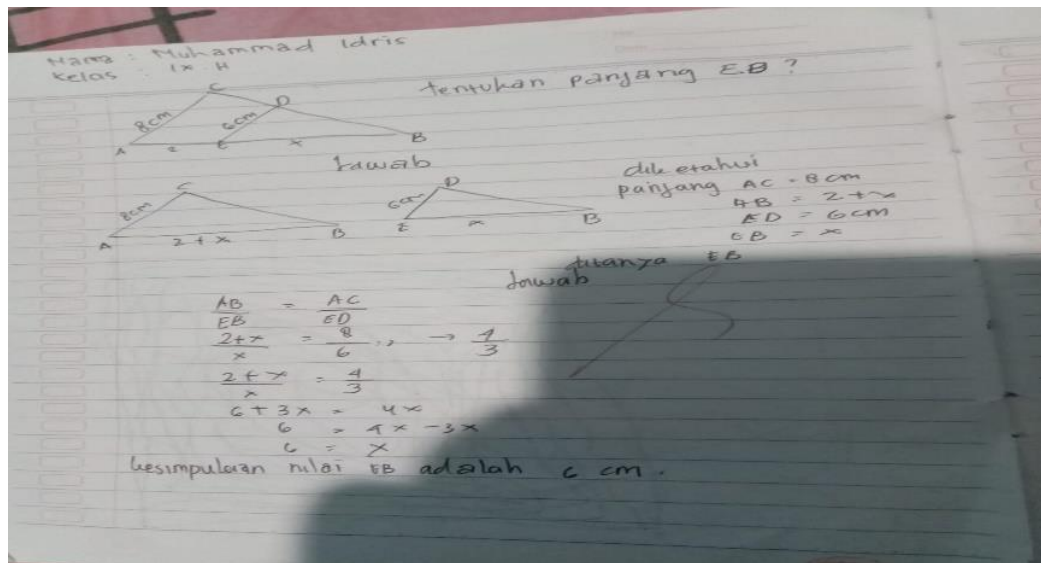 Nama : Muhammad Idris
Kelas : IX H
tentukan panjang EB ?
C
D
8cm
6cm
A 2 E x B
Jawab
C
8cm
A 2 + x B
D
6cm
E x B
diketahui
panjang AC = 8 cm
AB = 2 + x
ED = 6 cm
EB = x
ditanya EB
Jawab
AB/EB = AC/ED
2+x/x = 8/6 → 4/3
2+x/x = 4/3
6 + 3x = 4x
6 = 4x - 3x
6 = x
kesimpulaan nilai EB adalah 6 cm.